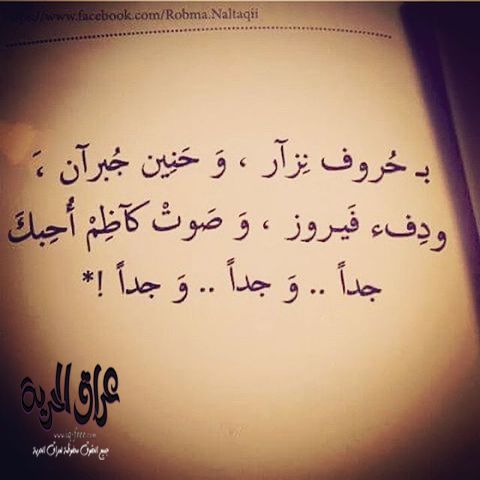 www.facebook.com/Robma.Naltaqii
بـ حُروف نِزآر ، وَ حَنِين جُبرآن ،َ
ودِفء فَيروز ، وَ صَوتْ كَآظِمْ أُحِبكَ
جداً .. وَ جداً .. وَ جداً !*
عراق الحرية
جميع الحقوق محفوظة لعراق الحرية